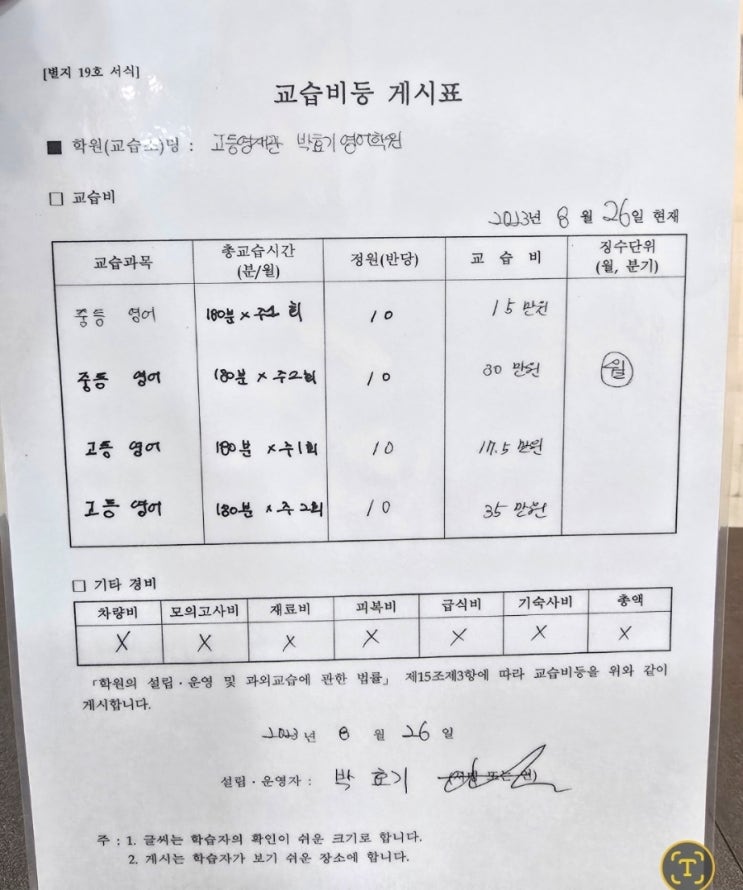 [별지 19호 서식]
교습비등 게시표
■ 학원(교습소)명 : 고등영재관 박효기영어학원
□ 교습비
2023년 8 월 26일 현재
교습과목 총교습시간 (분/월) 정원(반당) 교 습 비 징수단위 (월, 분기)
중등 영어 180분 × 주1 회 10 15 만원
중등 영어 180분 × 주2회 10 30 만원 월
고등 영어 180분 × 주1회 10 17.5 만원
고등 영어 180분 × 주 2회 10 35 만원
□ 기타 경비
차량비 모의고사비 재료비 피복비 급식비 기숙사비 총액
X X X X X X X
「학원의 설립·운영 및 과외교습에 관한 법률」 제15조제3항에 따라 교습비등을 위와 같이
게시합니다.
2023년 8 월 26 일
설립·운영자 : 박 효기 (서명 또는 인)
주 : 1. 글씨는 학습자의 확인이 쉬운 크기로 합니다.
2. 게시는 학습자가 보기 쉬운 장소에 합니다.